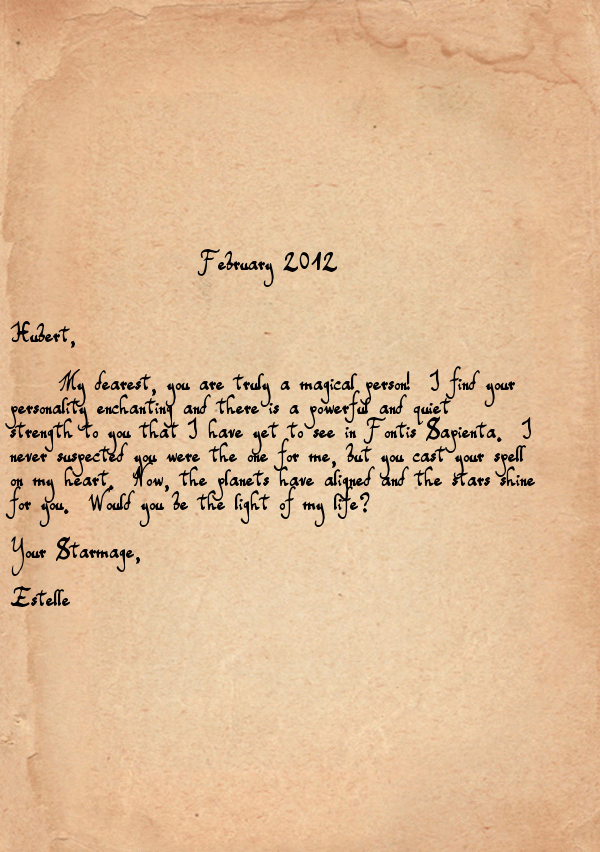 February 2012
Hubert,
My dearest, you are truly a magical person! I find your
personality enchanting and there is a powerful and quiet
strength to you that I have yet to see in Fontis Sapienta. I
never suspected you were the one for me, but you cast your spell
on my heart. Now, the planets have aligned and the stars shine
for you. Would you be the light of my life?
Your Starmage,
Estelle